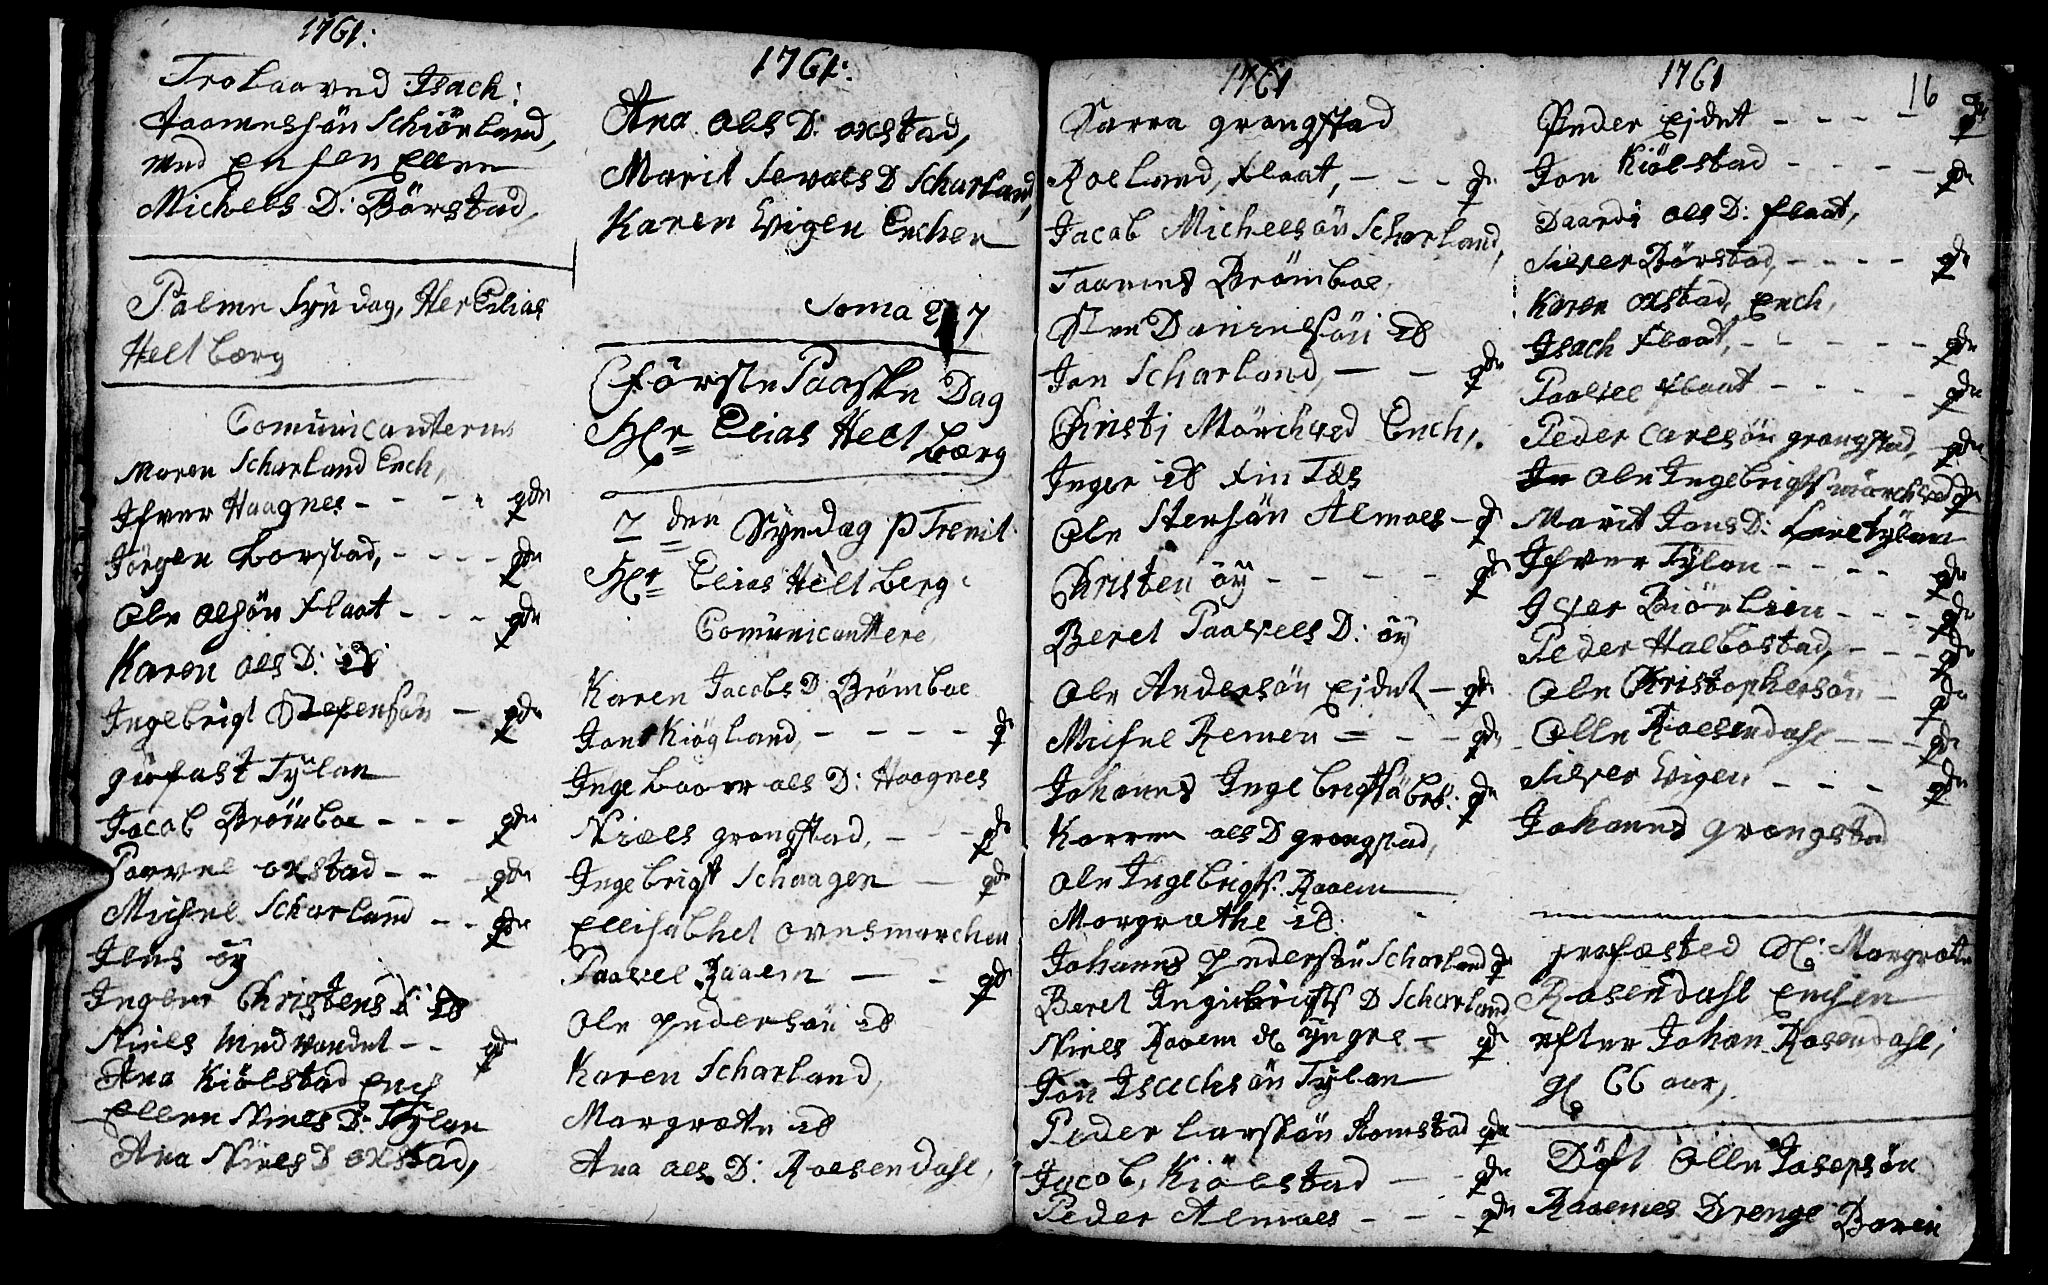 1761:
Trolaaved Isach:
Taamessön Schiörland,
med Enken Ellen
Michels D: Börstad,
Palme Syndag, Her Elias
Helt bærg
Comunicanterne
Maren Scharland Ench,
Ifver Haagnes - - - - qde
Jörgen Borstad, - - - - qde
Ole Olsön Flaat - - - qde
Karen Ols D: id
Ingebrigt Stefensön - qde
Gufast Tÿlan
Jacob Brömboe - - - qde
Paavel Oxstad - - - qde
Michel Scharland - - qde
Jens öÿ
Ingeer Christens D: id
Niels medvandet - - qde
Ana Kiölstad Ench
Ellen Niels D: Tÿlan
Ana Niels D oxstad,
1761:
Ana Ols D: oxstad,
Marit Sevals D Scharland,
Karen Vigen Enchen
Soma 27
Förste Paaske Dag
Her Elias Helt bærg
7 den Syndag p Trenit:
Her Elias Helt berg:
Comunicantere
Karen Jacobs D: Brömboe
Jon Kiögland, - - - - qde
Ingebaar Ols D: Haagnes
Niels grongstad, - - - qde
Ingebrigt Schaagen - qde
Ellisabhet Ovesmarchen
Paavel Raaem - - - qde
Ole Pedersön id
Karen Scharland,
Margrete id
Ana Ols D: Roesendahl,
1761
Sarra grongstad
Roeland, Flaat, - - - qde
Jacob Michelsön Scharland,
Taames Brömboe,
Sten Danielsön id
Jon Scharland, - - qde
Christi Mörchved Ench,
Inger id Fintæs
Ole Stensön Almaes - qde
Christen öÿ - - - - qde
Beret Paavels D: öÿ
Ole Andersön Ejdet - qde
Michel Remen - - - qde
Johanes Ingebrigtsö Brb: qde
Karren Ols D grongstad,
Ole Ingebrigts: Raaem
Margrathe id:
Johanes Pedersön Scharland qde
Beret Ingebrigts D Scharland
Niels Raaem d: yngre - qde
Jon Isachsön Tÿlan
Peder Larssön Romstad qde
Jacob, Kiölstad - - qde
Peder Almaes - - - qde
1761
16
Peder Ejdet - - - - qde
Jon Kiölstad - - - - qde
Daardi Ols D: Flaat,
Silfer Börstad, - - - - qde
Karen Oxstad, Ench,
Isach Flaat, - - - - - qde
Paavel Flaat - - - - qde
Peder Carlsön grongstad, qde
Ole Ingebrigts mörchved qde
Marit Jons D: Tÿlan
Ifver Tÿlan - - - - qde
Ifver Biörlien - - - qde
Peder Halbostad, - - - qde
Ole Kristophersön - qde
Olle Roesendahl - - - qde
Silfer Vigen - - - qde
Johanes grongstad
grafæsted Sl: Margrete
Rosendahl Enchen
efter Johan Rosendahl,
gl 66 aar,
Döft Olle Josepsön
Raaemes Drenge Baren